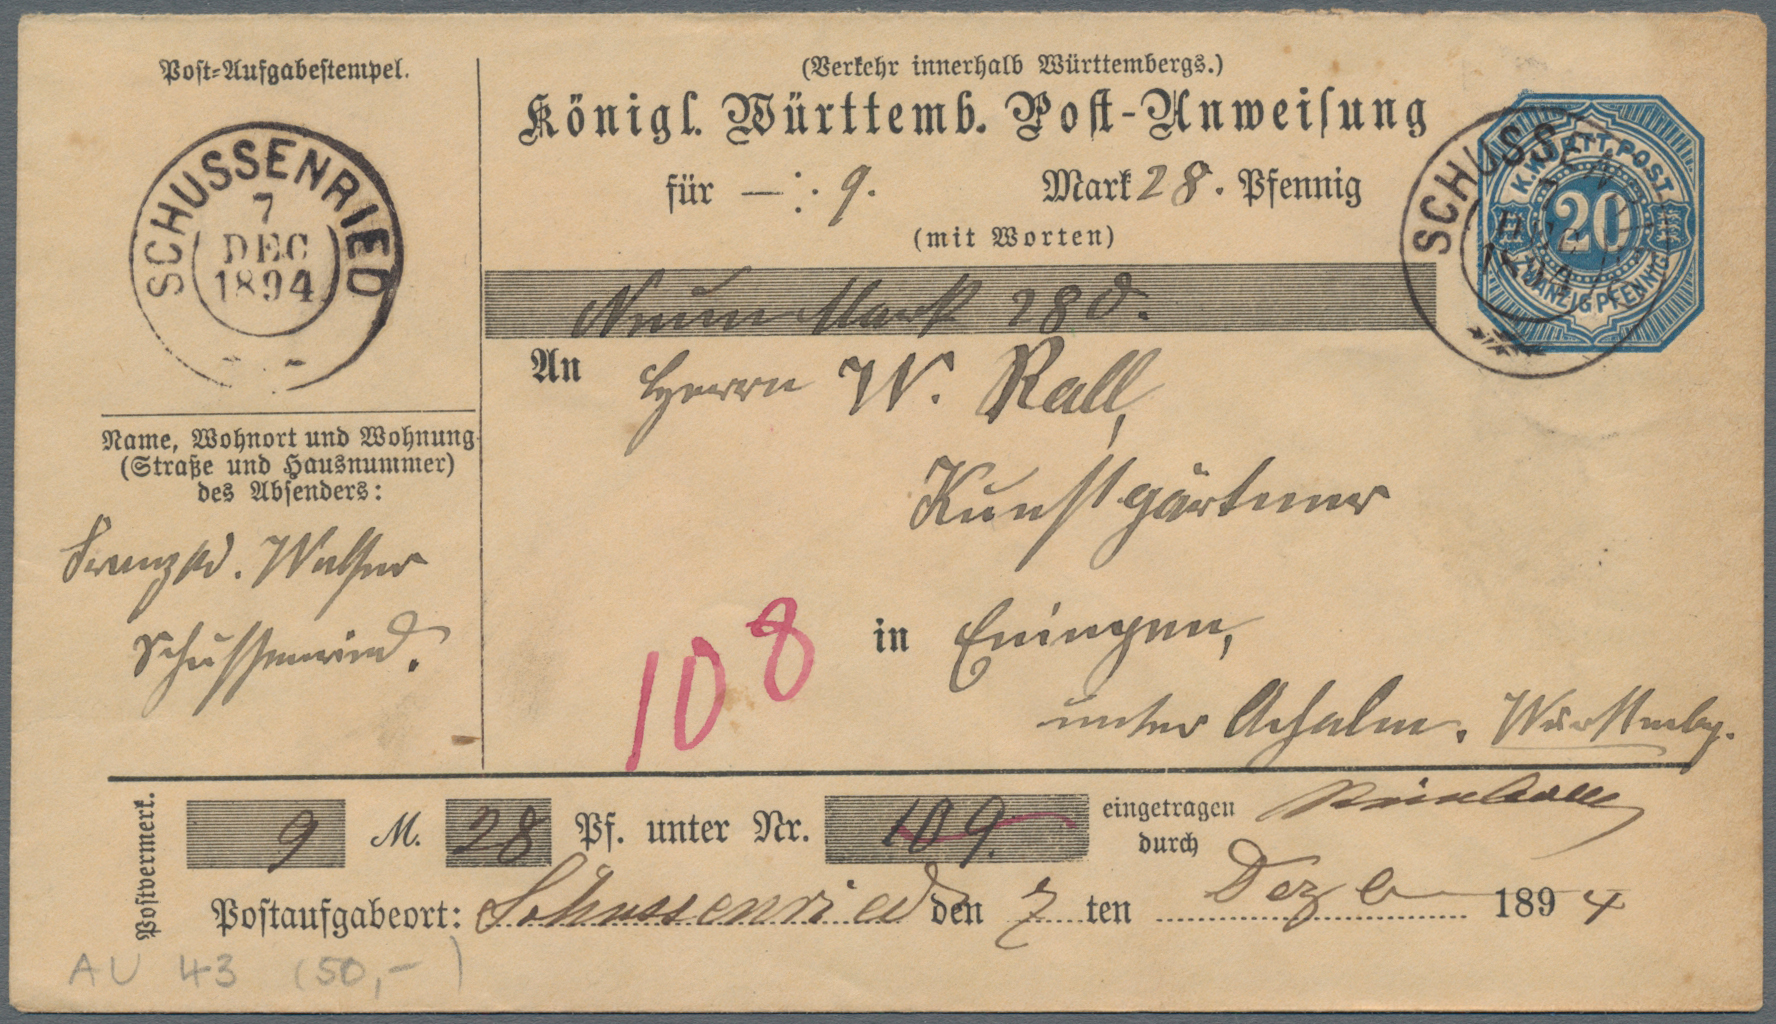 Post-Aufgabestempel.
SCHUSSENRIED
7
DEC
1894
(Verkehr innerhalb Württembergs.)
Königl. Württemb. Post-Anweisung
für —:. 9. Mark 28. Pfennig
(mit Worten)
Neun Mark 28 d.
K. WÜRTT. POST.
20
ZWANZIG PFENNIG
SCHUSSENRIED
7
DEC
1894
An Herrn W. Rall,
Kunstgärtner
in Eningen,
unter Achalm. Württembg.
Name, Wohnort und Wohnung
(Straße und Hausnummer)
des Absenders:
Walser
Schussenried.
108
Postvermerk.
9 M. 28 Pf. unter Nr. 109. eingetragen
durch
Postaufgabeort: Schussenried den 7 ten Dezb 1894
AU 43 (50,-)